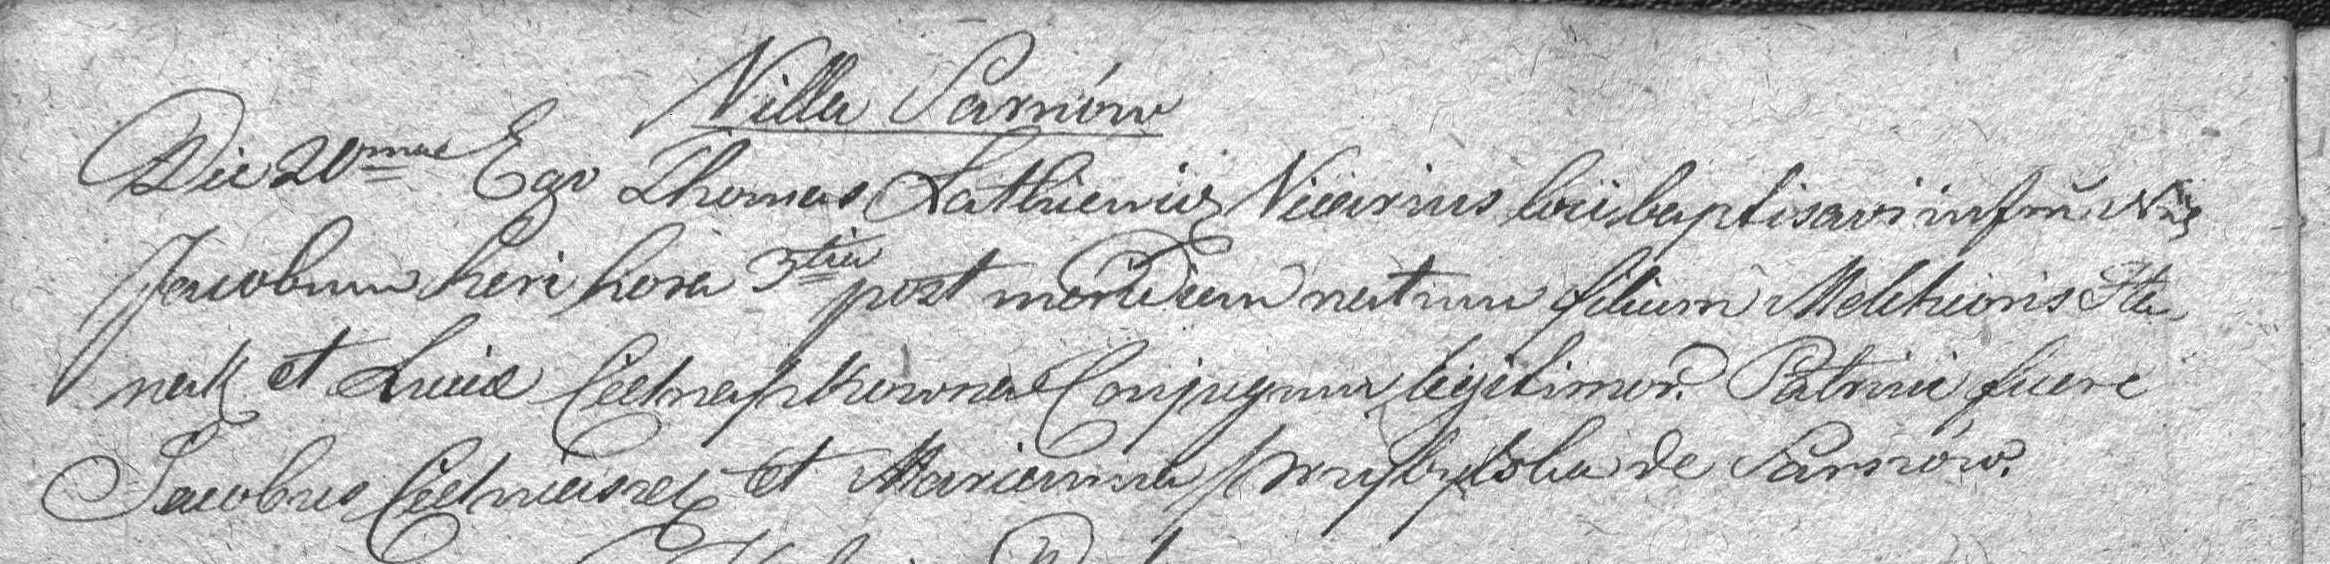 Villa Sarnów
Die 20mae Ego Thomas Vicarius loci baptisavi infm Nõe
Jacobum heri hora 3tia post meridiem natum filium Melchioris Sta
nak et Luciæ Conjugum legitimor. Patrini fuere
Jacobus et Marianna Przybylska de Sarnów.